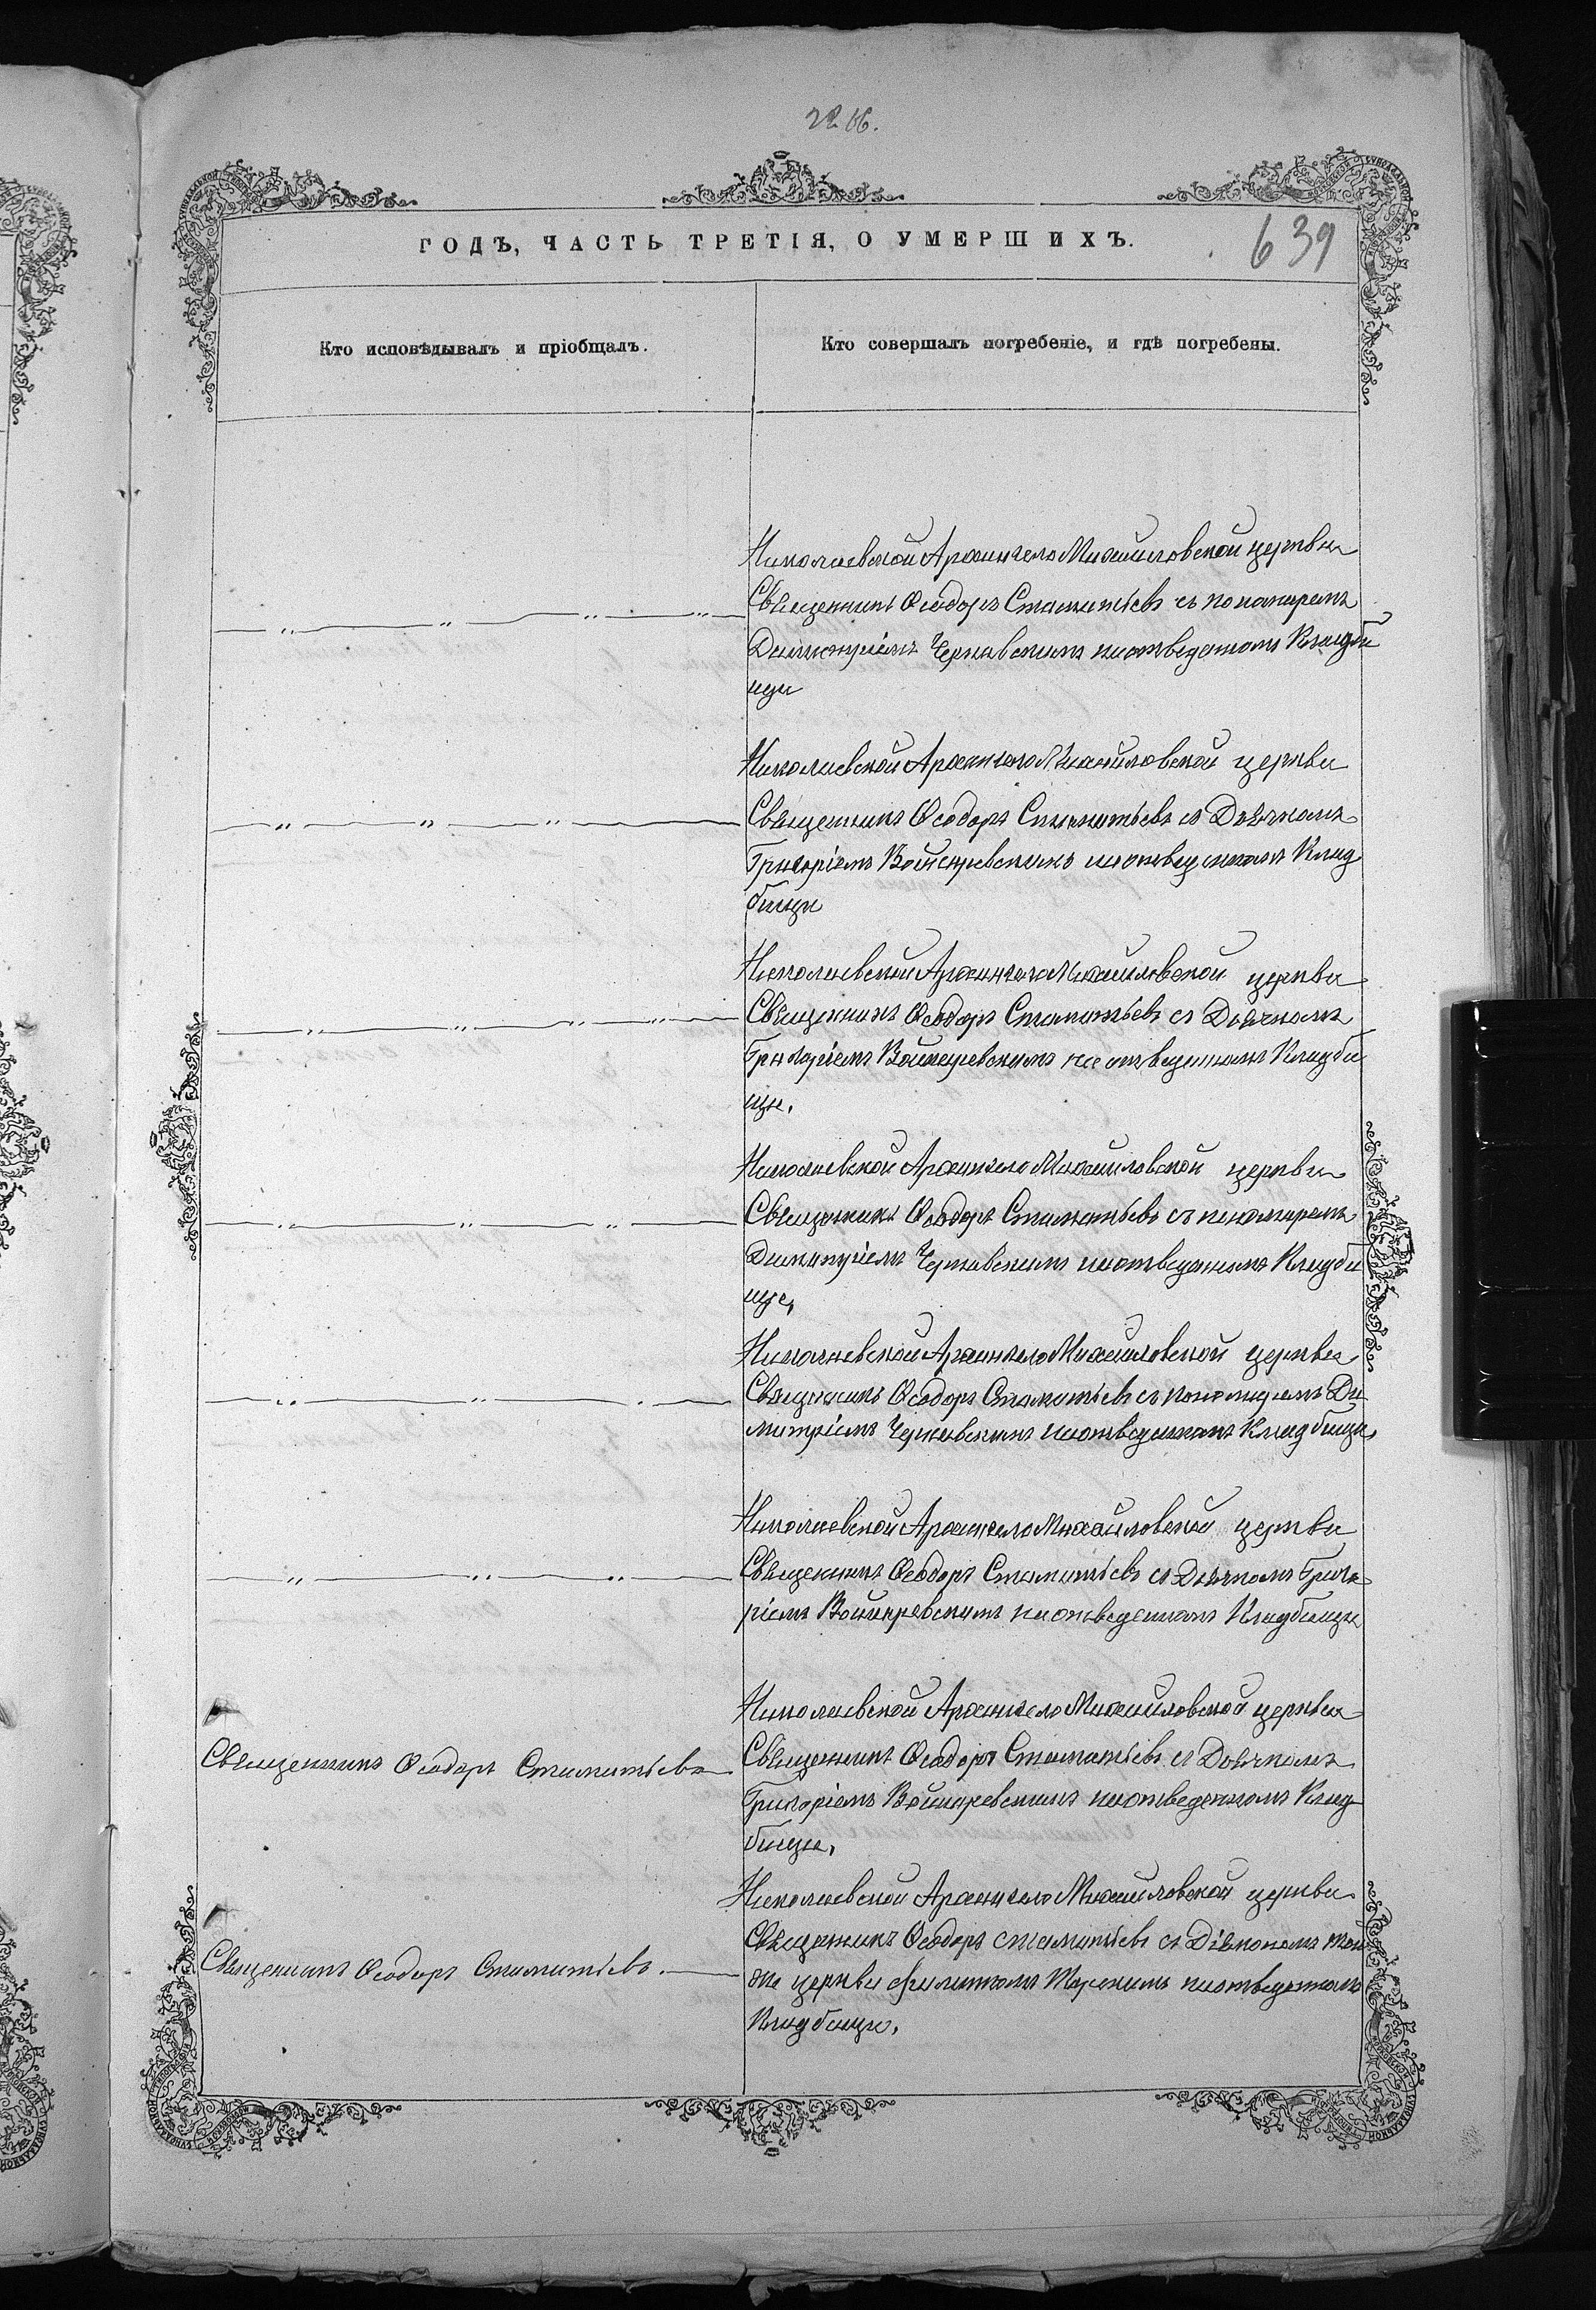 22 об.
ГОДЪ, ЧАСТЬ ТРЕТІЯ, О УМЕРШИХЪ.
639
Кто исповѣдывалъ и пріобщалъ.
Кто совершалъ погребеніе, и гдѣ погребены.
Николаевской Архангело Михаиловской церкви
Священникъ Ѳеодоръ Стаматьевъ съ пономаремъ
Димитріемъ Чернявскимъ на отведеномъ Кладби
щи
Николаевской Архангело Михаиловской церкви
Священникъ Ѳеодоръ Стаматьевъ съ Дьячкомъ
Григоріемъ на отведенномъ Клад
бищи
Николаевской Архангело Михаиловской церкви
Священникъ Ѳеодоръ Стаматьевъ съ Дьячкомъ
Григоріемъ на отведенномъ Кладби
щи.
Николаевской Архангело Михаиловской церкви
Священникъ Ѳеодоръ Стаматьевъ съ пономаремъ
Димитріемъ Чернявскимъ на отведеномъ Кладби
ще,
Николаевской Архангело Михаиловской церкви
Священникъ Ѳеодоръ Стаматьевъ съ пономаремъ Ди
митріемъ Чернявскимъ на отведенномъ Кладбищи,
Николаевской Архангело Михаиловской церкви
Священникъ Ѳеодоръ Стаматьевъ съ Дьячкомъ Григо
ріемъ на отведенномъ Кладбищи
Николаевской Архангело Михаиловской церкви
Священникъ Ѳеодоръ Стаматьевъ
Священникъ Ѳеодоръ Стаматьевъ съ Дьячкомъ
Григоріемъ на отведенномъ Клад
бищи,
Николаевской Архангело Михаиловской церкви
Священникъ Ѳеодоръ Стаматьевъ.
Священникъ Ѳеодоръ Стаматьевъ съ Діакономъ той
же церкви на отведенномъ
Кладбищи,